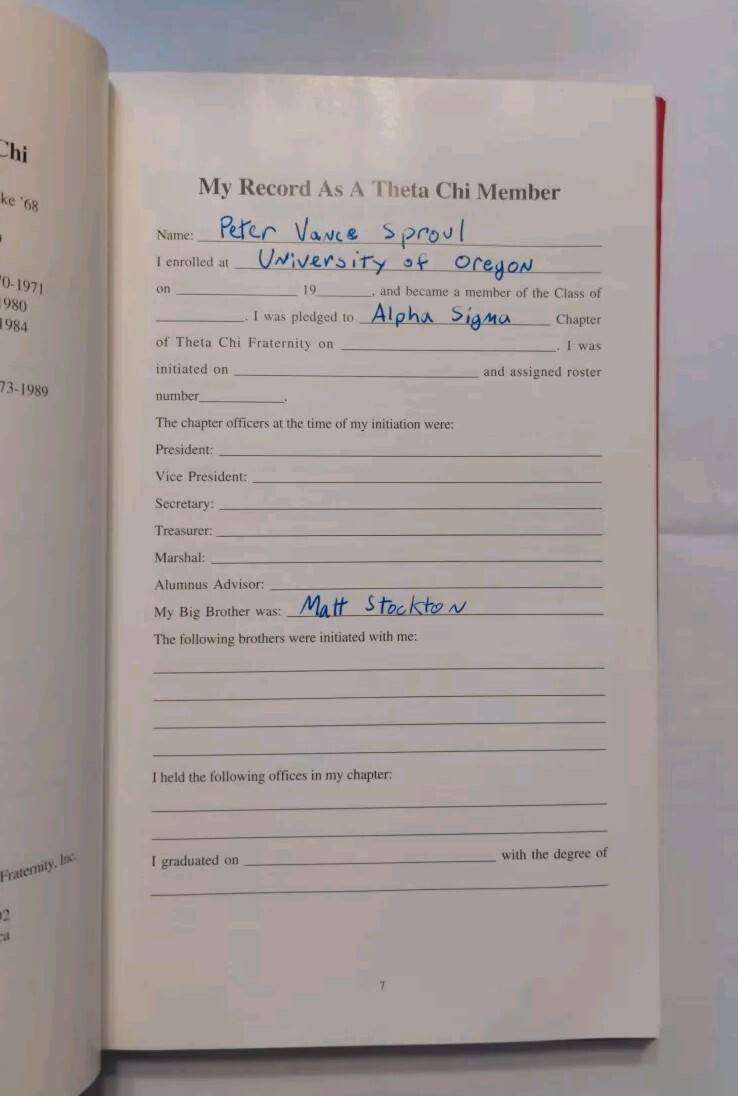 Chi
ke '68
0-1971
1980
1984
73-1989
Fraternity, Inc.
02
ca
My Record As A Theta Chi Member
Name: Peter Vance Sproul
I enrolled at University of Oregon
on ____________ 19______, and became a member of the Class of
____________. I was pledged to Alpha Sigma Chapter
of Theta Chi Fraternity on ____________. I was
initiated on ____________ and assigned roster
number____________.
The chapter officers at the time of my initiation were:
President: ____________
Vice President: ____________
Secretary: ____________
Treasurer: ____________
Marshal: ____________
Alumnus Advisor: ____________
My Big Brother was: Matt Stockton
The following brothers were initiated with me:
I held the following offices in my chapter:
I graduated on ____________ with the degree of
7